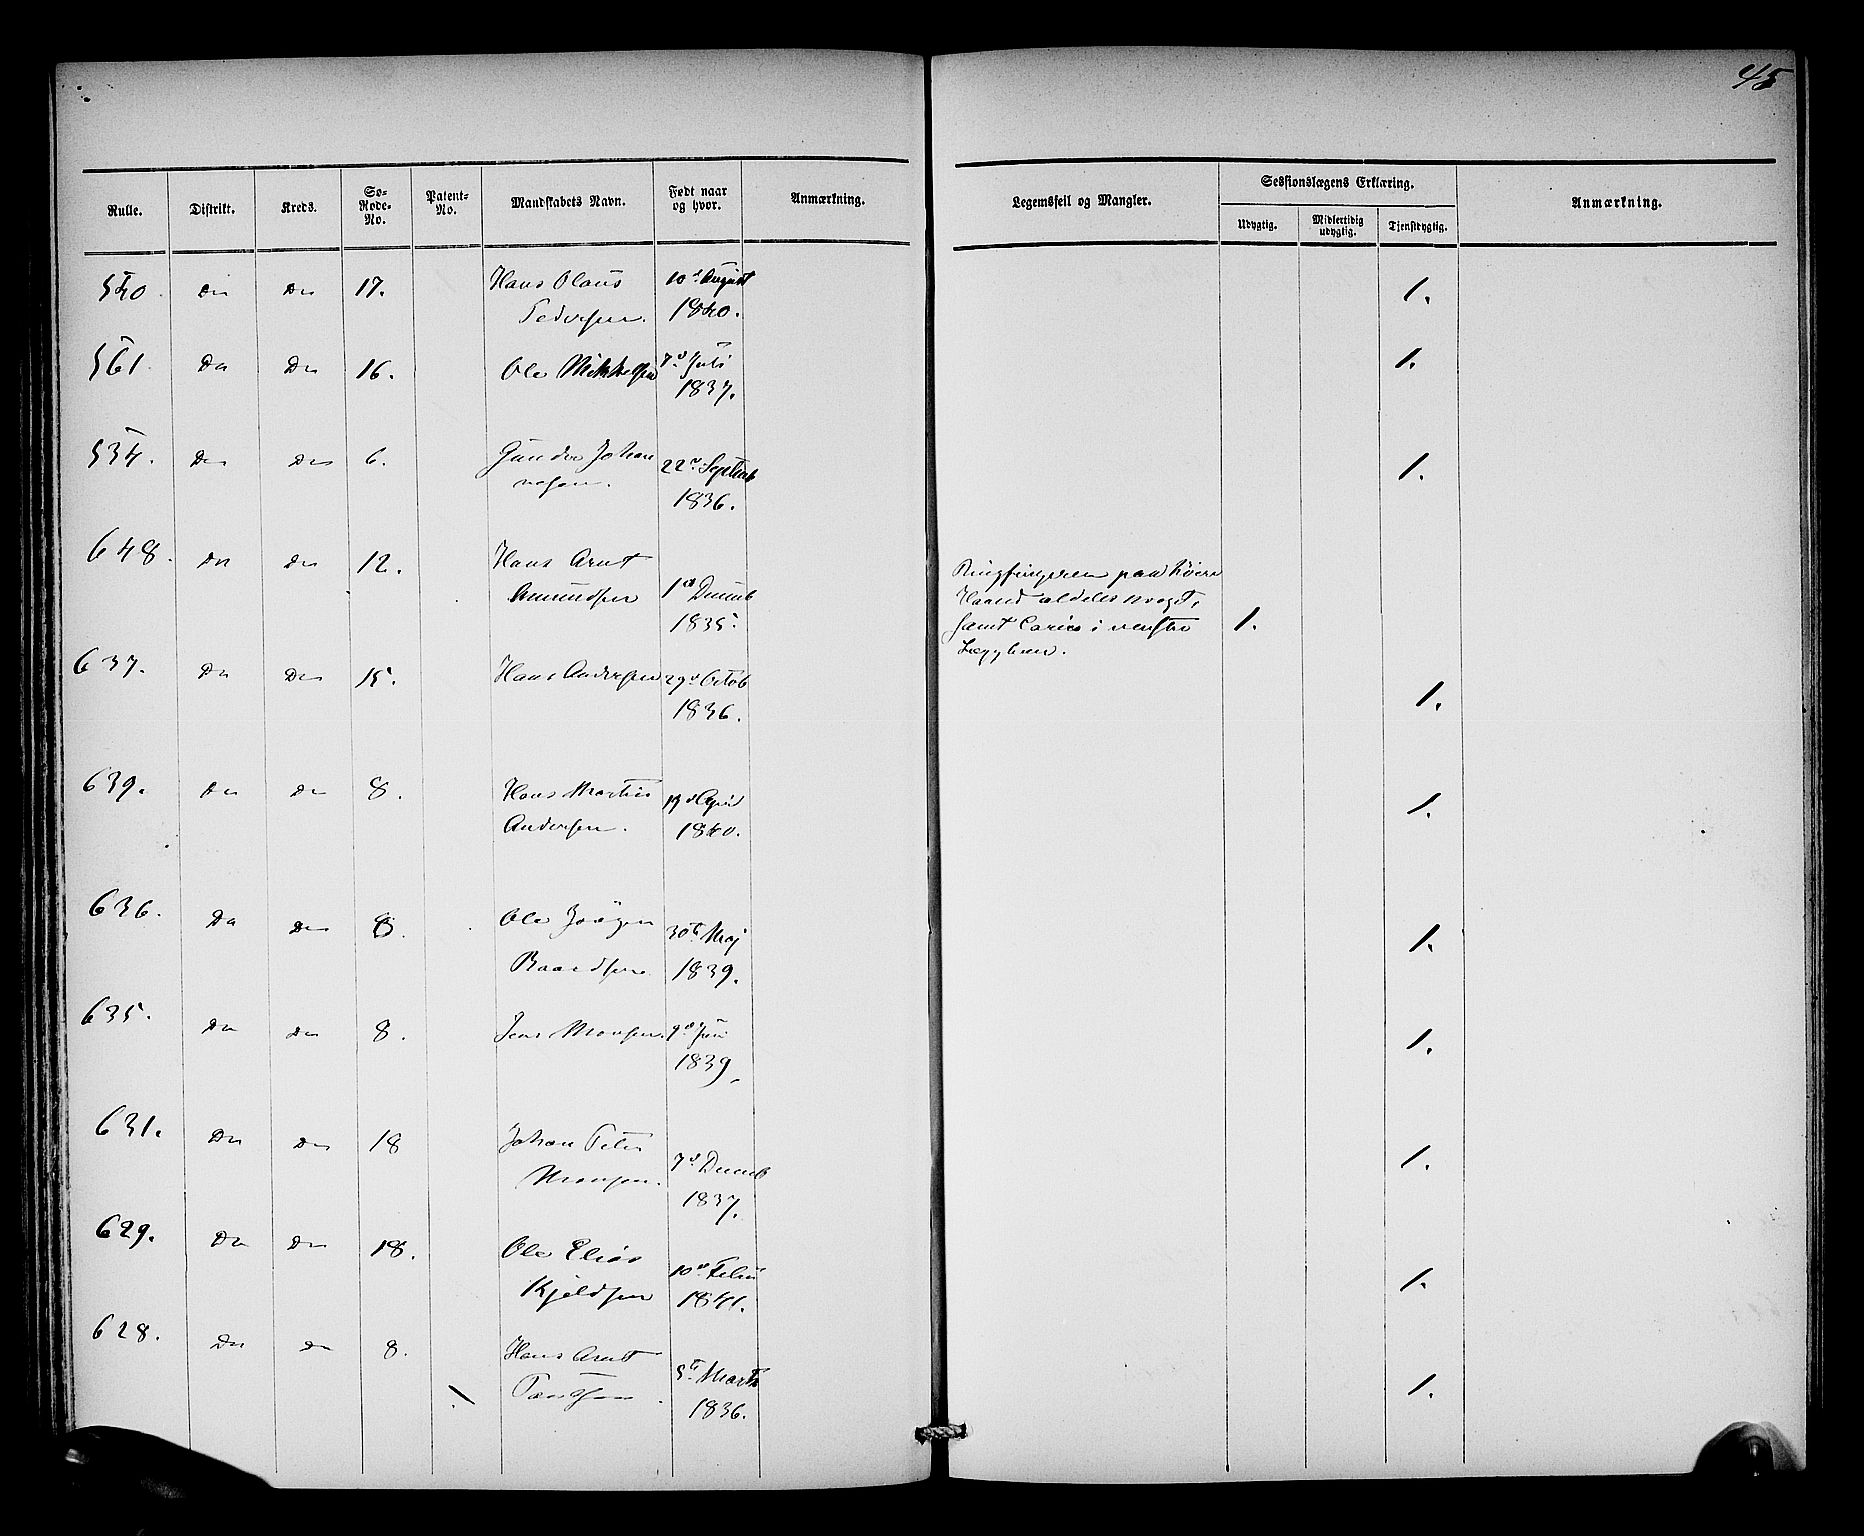 45
Rulle. Distrikt. Kreds. Sø-Rode-No. Patent-No. Mandskabets Navn. Født naar og hvor. Anmærkning.
Legemsfeil og Mangler. Sessionslægens Erklæring. Anmærkning.
Udygtig. Midlertidig udygtig. Tjenstdygtig.
540. Do Do 17. Hans Olaus 10d August 1.
Pedersen. 1840.
561. Do Do 16. Ole Mikkelsen 7d Juli 1.
1837.
534. Do Do 6. Gunder Johan 22d Septemb 1.
nesen. 1836.
648. Do Do 12. Hans Arnt
Amundsen 1d Decemb
1835.
Ringfingeren paa høire
Haand aldeles
samt Caries i venstre 1.
Lægbeen.
637. Do Do 15. Hans Andersen 29d Octob 1.
1836.
639. Do Do 8. Hans Martin 19d April 1.
Andersen. 1840.
636. Do Do 8. Ole Jørgen 30te Maj 1.
Baardsen 1839.
635. Do Do 8. Jens Monsen. 9d 1.
1839.
631. Do Do 18 Johan Peter
Monsen. 7d Decemb 1.
1837.
629. Do Do 18. Ole Elias
Kjeldsen 10d Febru 1.
1841.
628. Do Do 8. Hans Arnt
5te Marts 1.
1836.